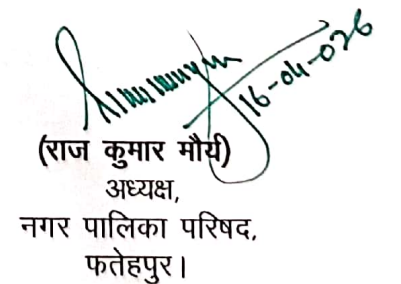 16-04-026
(राज कुमार मौर्य)
अध्यक्ष,
नगर पालिका परिषद,
फतेहपुर।